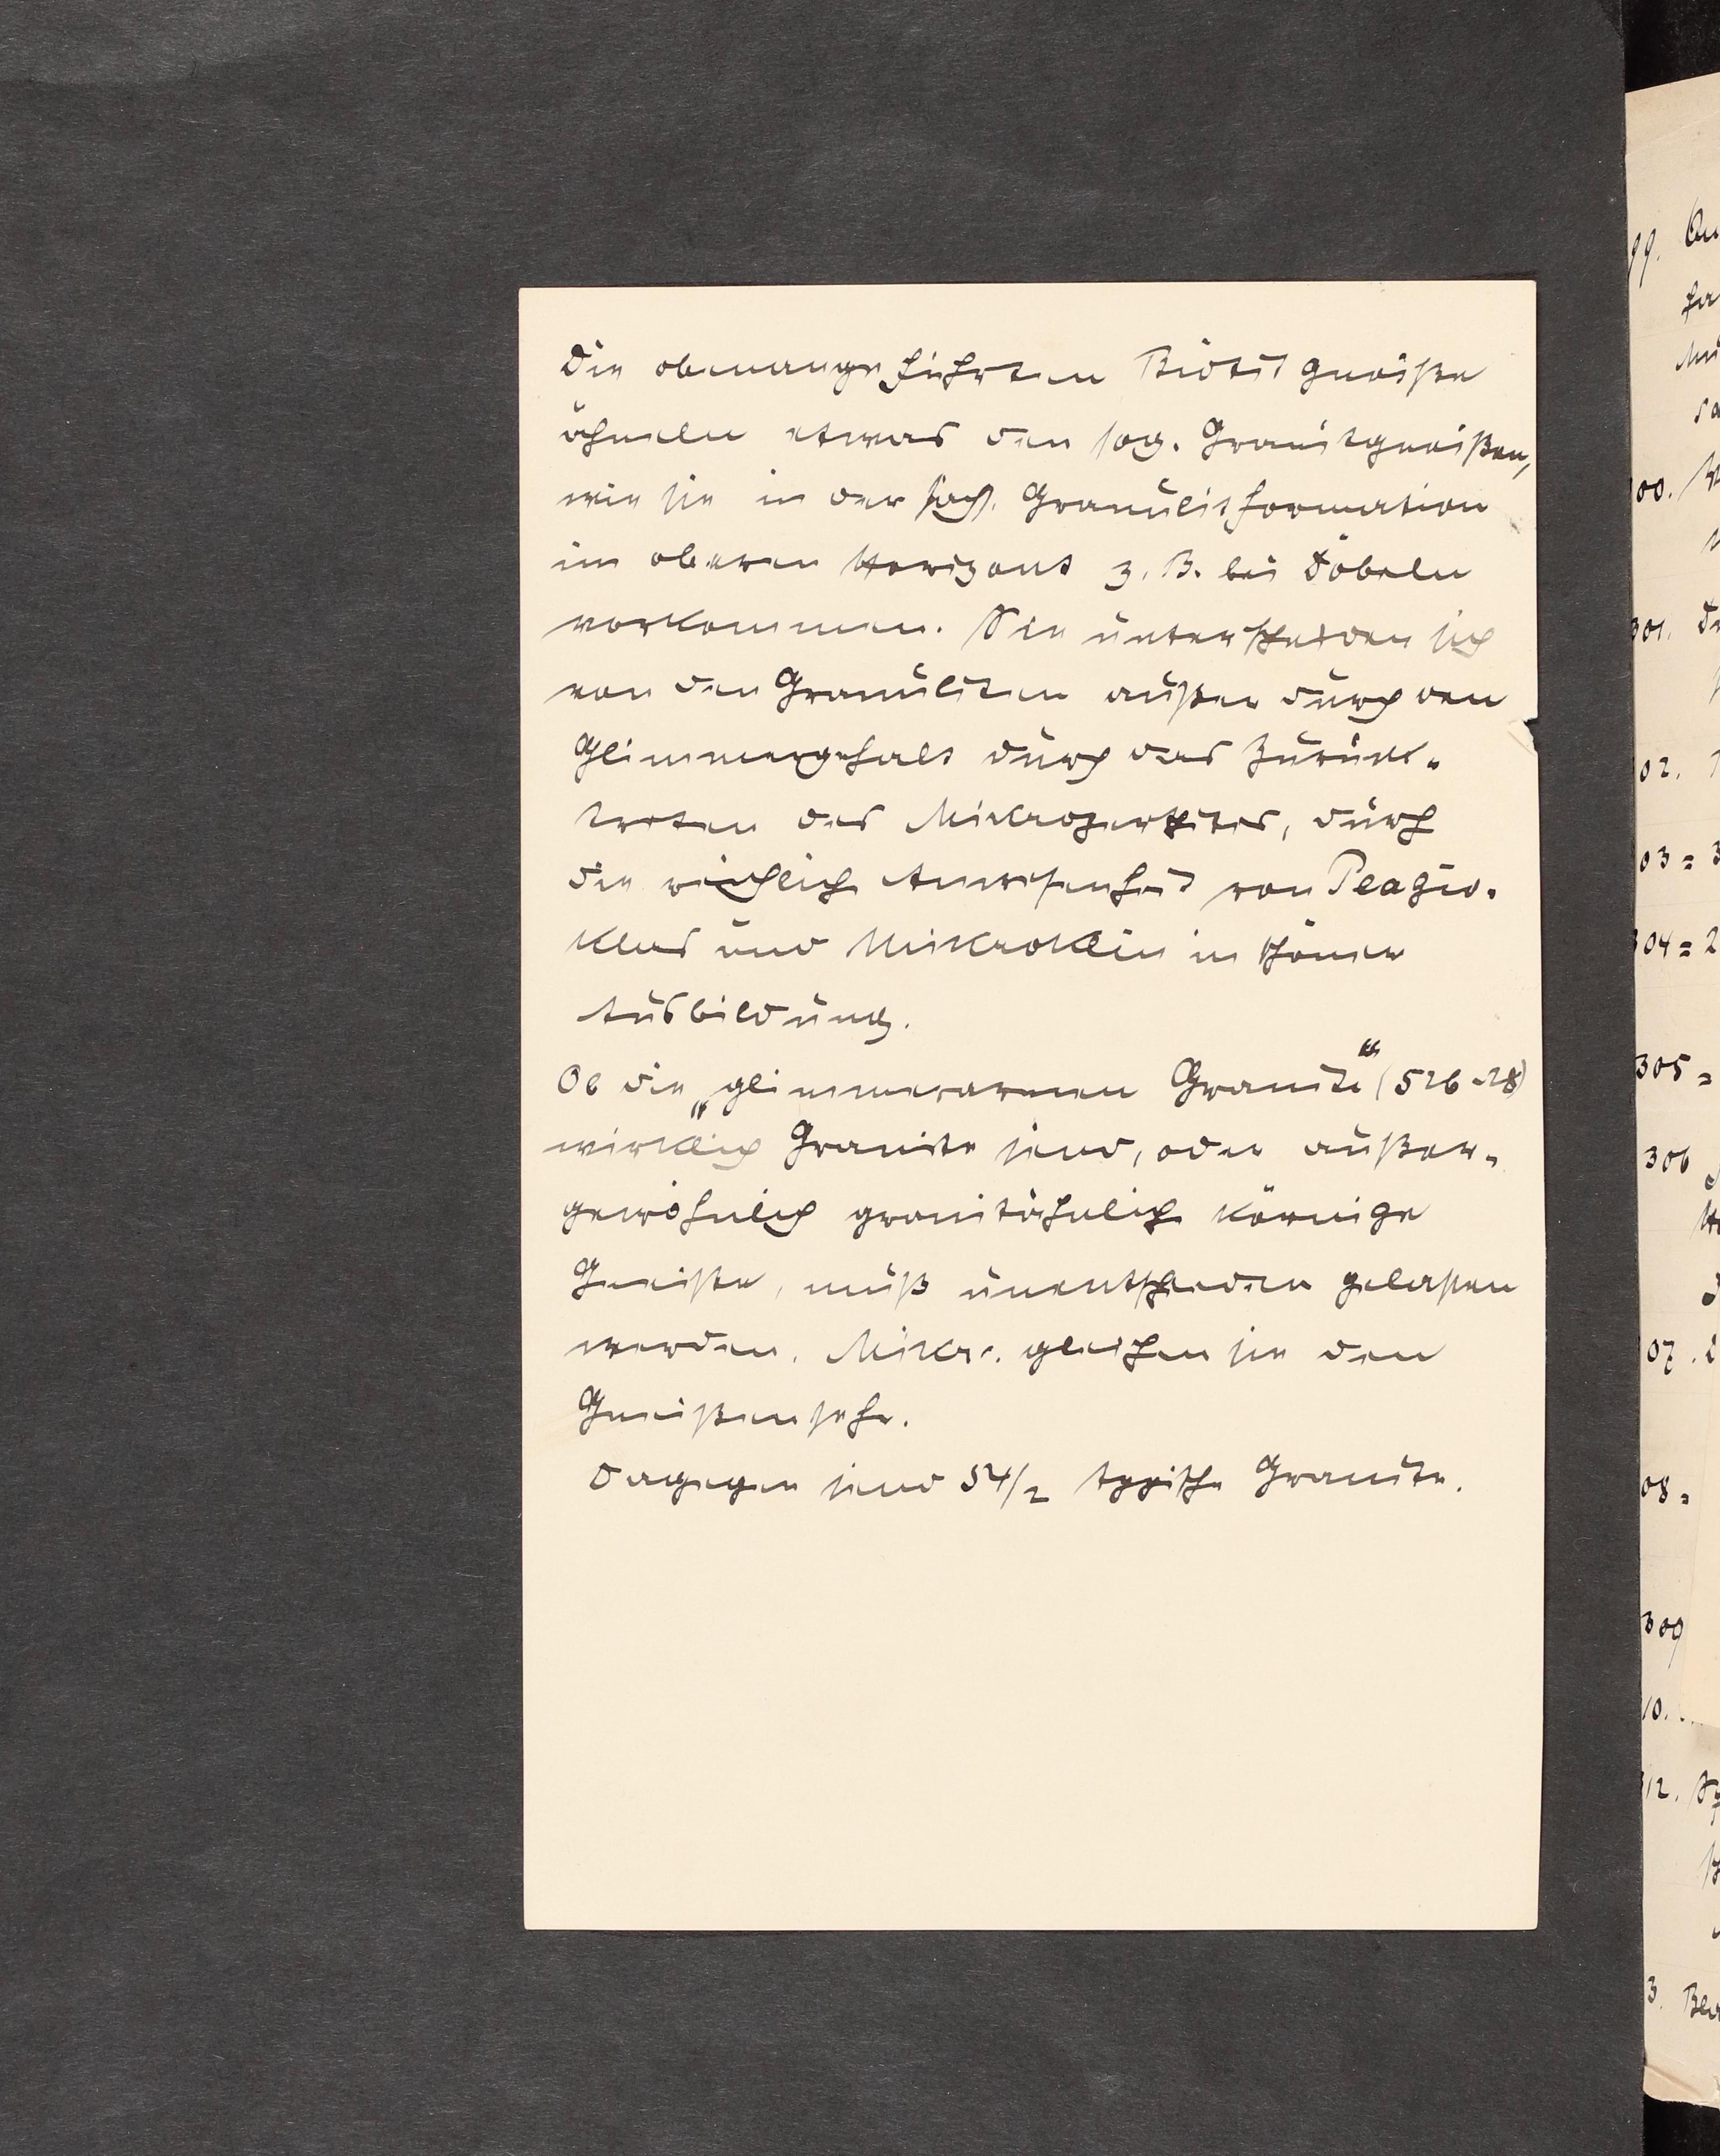 Die obenangeführten Biotitgneiße
ähneln etwas den sog. Granitgneißen,
wie sie in der sächs. Granulitformation
im oberen Horizont z. B. bei Döbeln
vorkommen. Sie unterscheiden sich
von den Granuliten außer durch den
Glimmergehalt durch das Zurück-
treten des Mikroperthites, durch
die reichliche Anwesenheit von Plagio-
klas und Mikroklin in schöner
Ausbildung.
Ob die „glimmerarmen Granite“ (526-28)
wirklich Granite sind, oder außer-
gewöhnlich granitähnlich körnige
Gneiße, muß unentschieden gelassen
werden. Mikr. gleichen sie den
Gneißen sehr.
Dagegen sind 54/2 typische Granite.
99.
300.
301.
02.
03 =
304 = 2
305 =
306
07.
08 =
309
10.
312.
3.